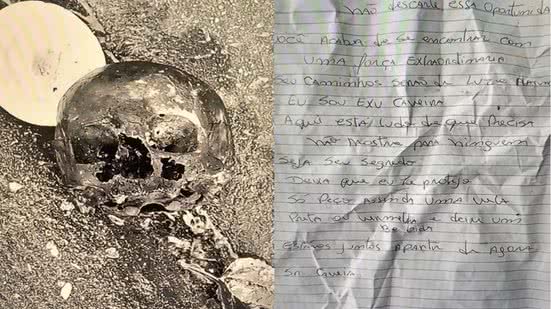 não descarte essa oportunida
Você Acaba de se encontrar com
uma força Extraordinária
Seu Caminhos serão de
EU SOU EXU CAVEIRA
Aqui está tudo de que Precisa
não mostre para ninguem
Seja Seu Segredo
Deixa que eu te proteja
So Peço Acenda uma vela
Preta ou vermelha e deixe uma
Bebida
Estamos juntos apartir de Agora
Sr Caveira